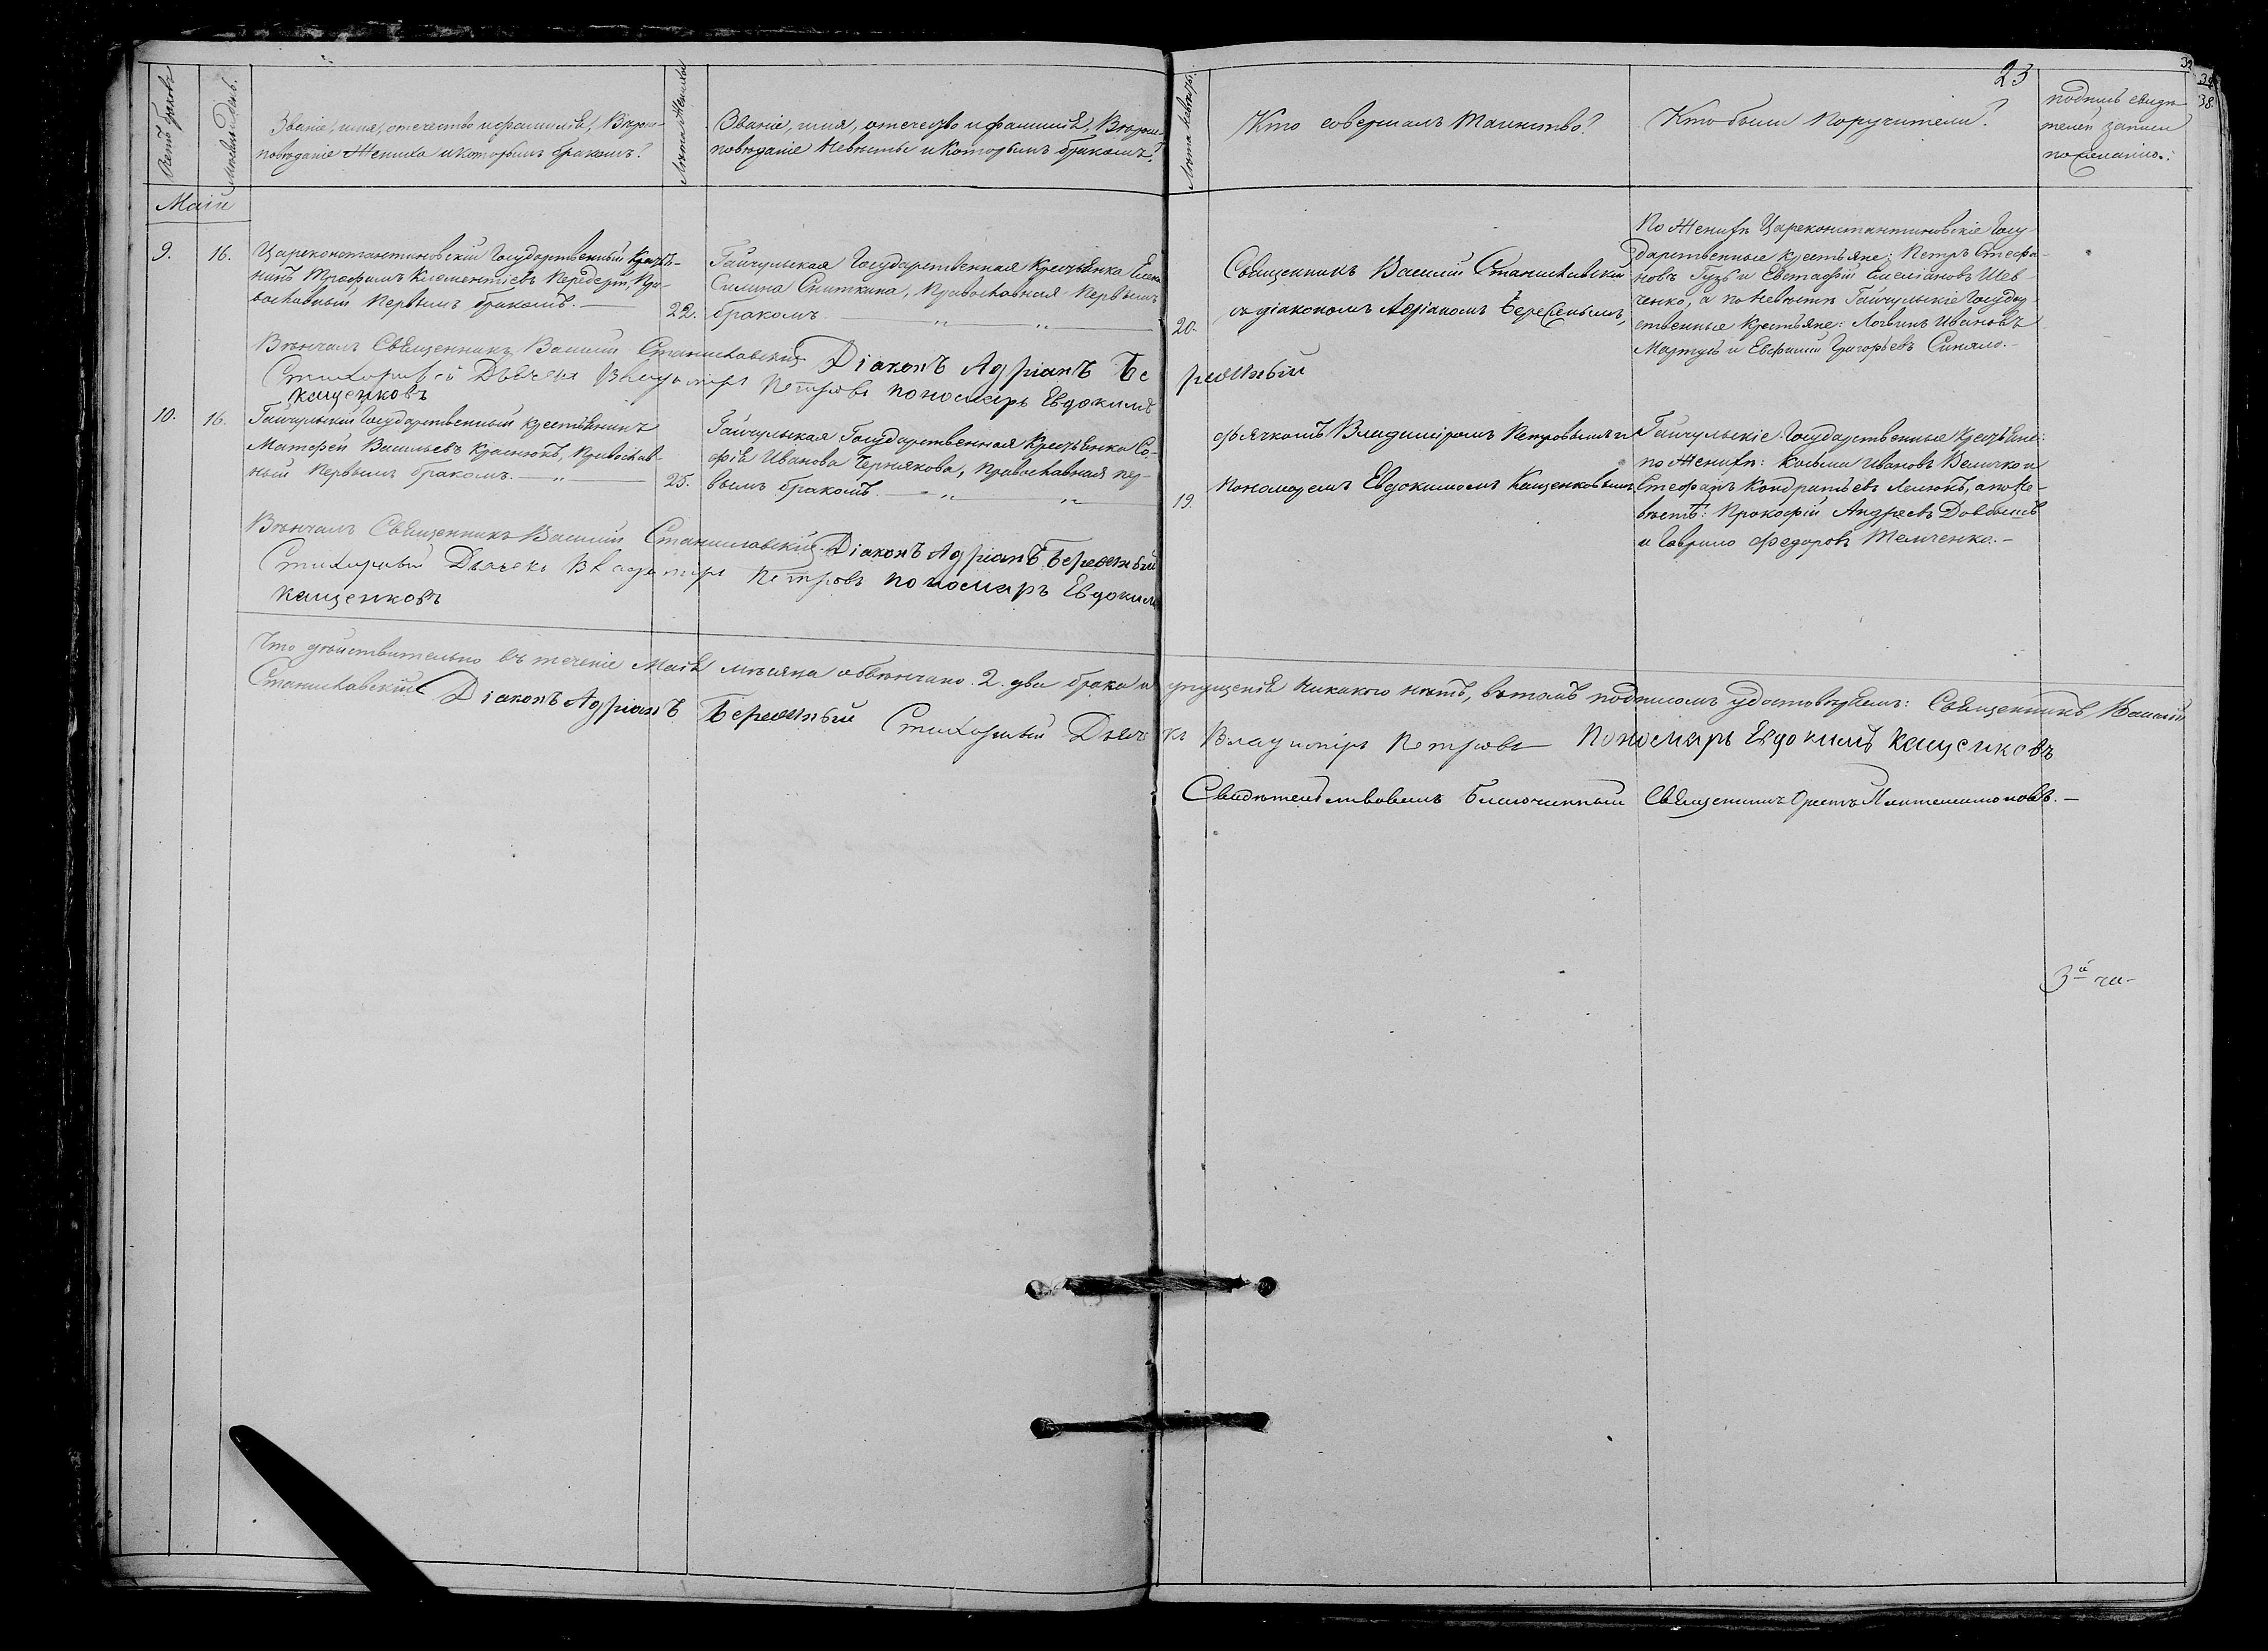 23
Счетъ браковъ
Месяцъ и День.
Званіе, имя, отечество и фамилія, Вѣроис-
повѣданіе Жениха и которымъ бракомъ?
Лѣта Жениха
Званіе, имя, отечество и фамилія, Вѣроис-
повѣданіе Невѣсты и которымъ бракомъ?
Лѣта Невѣсты.
Кто совершалъ Таинство?
Кто были Поручители?
подпись свидѣ-
телей записи
по желанію.
Маій
9.
16.
Цареконстантиновскій Государственный Кресть-
нинъ Трофимъ Климентіевъ Передерій, Пра-
вославный Первымъ бракомъ.—
22.
Гайчульская Государственная Крестьянка Елена
Силина Сниткина, Православная Первымъ
бракомъ.
20.
Священникъ Василій Станиславскій
съ діакономъ Адріаномъ Бережнымъ,
По Женихѣ Цареконстантиновскіе Госу
дарственные крестьяне: Петръ Стефа-
новъ Гузь и Евстафій Емеліановъ Шев-
ченко, а по Невѣстѣ Гайчульскіе Государ
ственные Крестьяне: Логвинъ Ивановъ
и Евфимій Григорьевъ Синяло.—
Вѣнчалъ Священникъ Василій Станиславскій Діаконъ Адріанъ Бе
режный
Стихарный Дьячекъ Владиміръ Петровъ пономарь Евдокимъ
кащенковъ
10.
16.
Гайчульскій Государственный крестьянинъ
Матфей Васильевъ Краснюкъ, Православ-
ный Первымъ бракомъ.—
25.
Гайчульская Государственная Крестьянка Со-
фія Иванова Чернякова, Православная пер-
вымъ бракомъ.
19.
дьячкомъ Владиміромъ Петровымъ и
Пономаремъ Евдокимомъ Кащенковымъ.
Гайчульскіе Государственные Крестьяне:
по Женихѣ: Косьма Ивановъ Величко и
Стефанъ Кондратьевъ Лемюкъ, а по Не-
вѣстѣ: Прокофій Андреевъ Довбышъ
и Гаврило Федоровъ Темченко.—
Вѣнчалъ Священникъ Василій Станиславскій. Діаконъ Адріанъ Бережный
Стихарный Дьячекъ Владиміръ Петровъ пономарь Евдокимъ
кащенковъ
Что дѣйствительно въ теченіе Маія мѣсяца обвѣнчано 2. два брака и упущенія никакого нѣтъ, въ томъ подписомъ удостовѣряемъ: Священникъ Василій
Станиславскій Діаконъ Адріанъ Бережный Стихарный Дьячекъ Владиміръ Петровъ Пономарь Евдокимъ Кащенковъ
Свидѣтельствовалъ Благочинный Священникъ Орестъ Пантелимоновъ.—